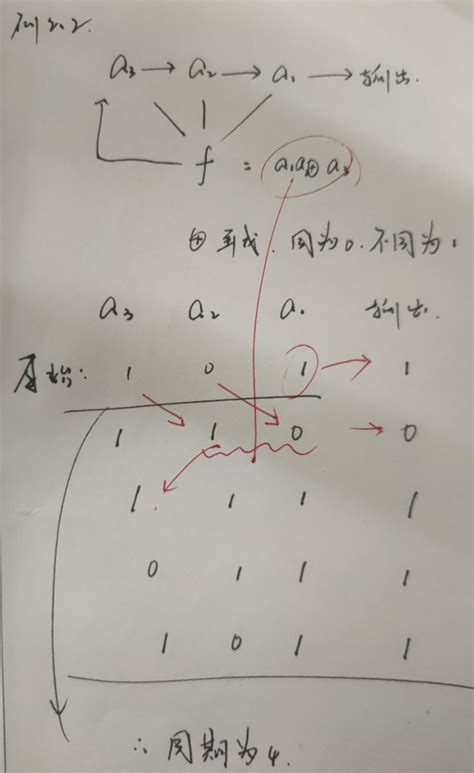 例2.2.
a₃ → a₂ → a₁ → 输出.
f = a₁a₂⊕a₃
⊕ 异或. 同为0. 不同为1
a₃ a₂ a₁ 输出.
原始: 1 0 1 → 1
1 1 0 → 0
1 1 1 1
0 1 1 1
1 0 1 1
∴ 周期为4.